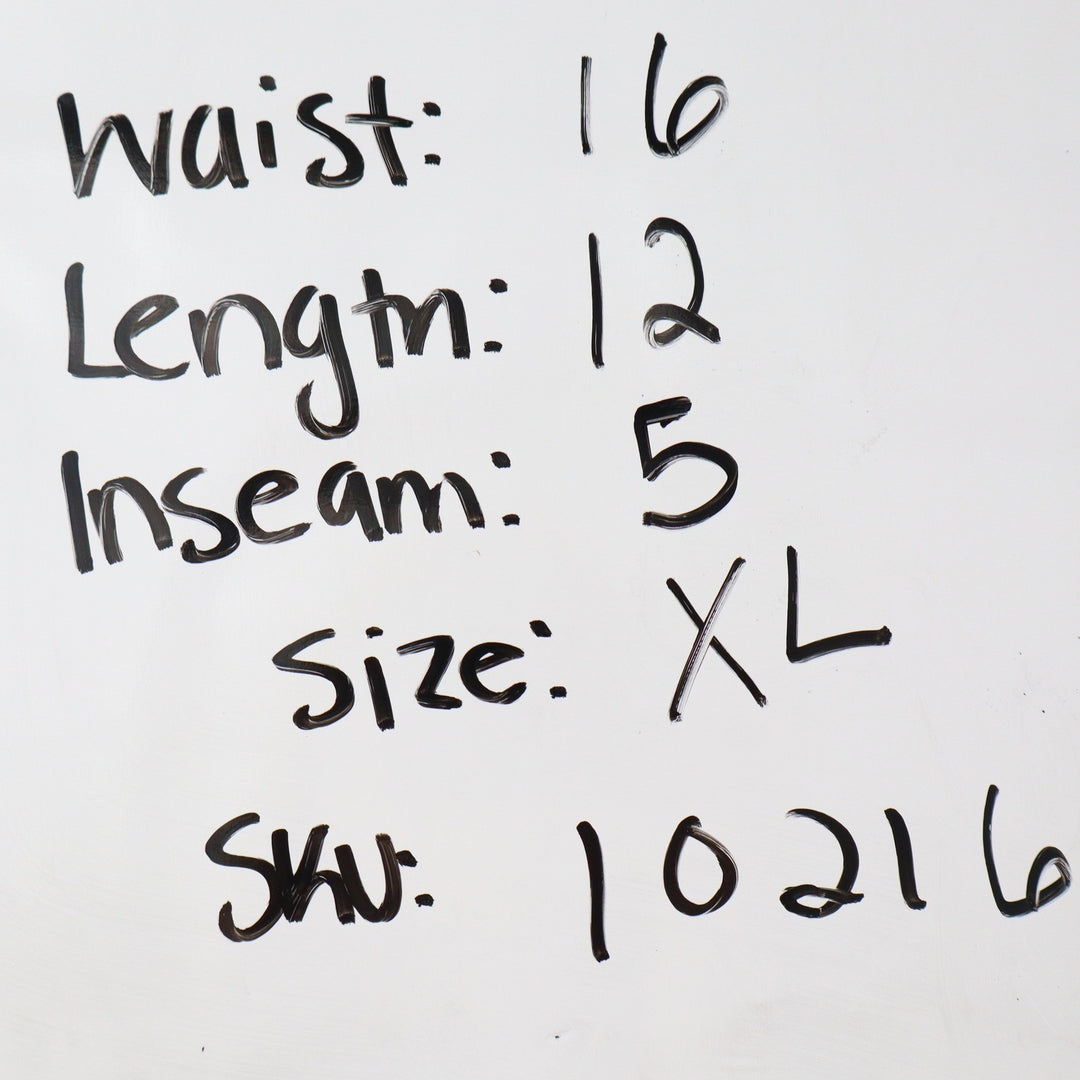 Waist: 16
Length: 12
Inseam: 5
Size: XL
SKU: 10216